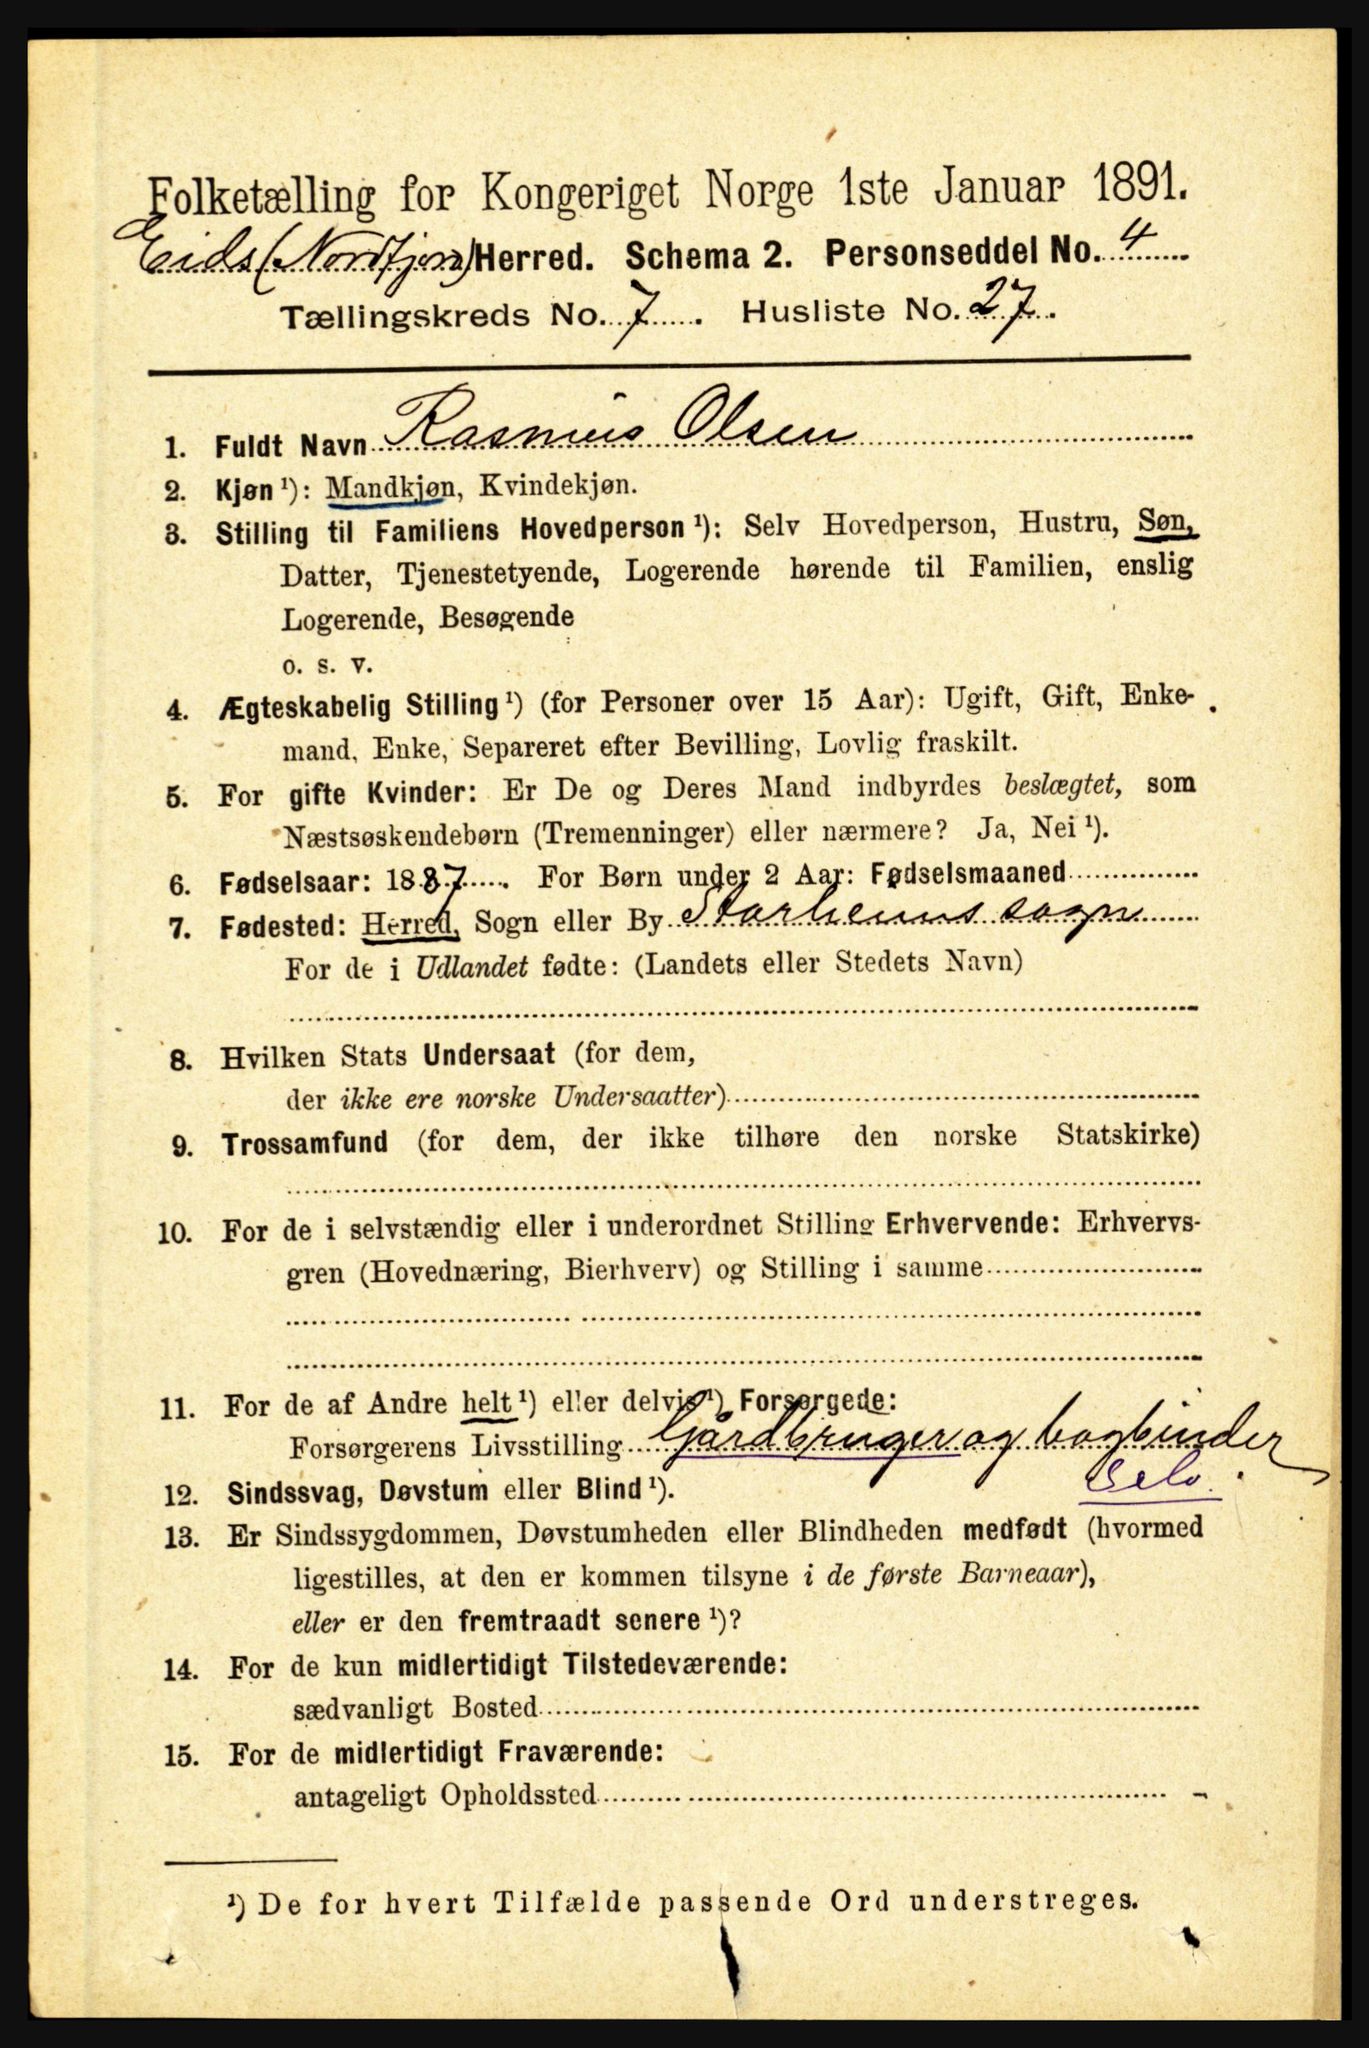 Folketælling for Kongeriget Norge 1ste Januar 1891.
Eids (Nordfjord) Herred. Schema 2. Personseddel No. 4
Tællingskreds No. 7. Husliste No. 27.
1. Fuldt Navn Rasmus Olsen
2. Kjøn ¹): Mandkjøn, Kvindekjøn.
3. Stilling til Familiens Hovedperson ¹): Selv Hovedperson, Hustru, Søn,
Datter, Tjenestetyende, Logerende hørende til Familien, enslig
Logerende, Besøgende
o. s. v.
4. Ægteskabelig Stilling ¹) (for Personer over 15 Aar): Ugift, Gift, Enke-
mand, Enke, Separeret efter Bevilling, Lovlig fraskilt.
5. For gifte Kvinder: Er De og Deres Mand indbyrdes beslægtet, som
Næstsøskendebørn (Tremenninger) eller nærmere? Ja, Nei ¹).
6. Fødselsaar: 1887. For Børn under 2 Aar: Fødselsmaaned
7. Fødested: Herred, Sogn eller By Starheims sogn
For de i Udlandet fødte: (Landets eller Stedets Navn)
8. Hvilken Stats Undersaat (for dem,
der ikke ere norske Undersaatter)
9. Trossamfund (for dem, der ikke tilhøre den norske Statskirke)
10. For de i selvstændig eller i underordnet Stilling Erhvervende: Erhvervs-
gren (Hovednæring, Bierhverv) og Stilling i samme
11. For de af Andre helt ¹) eller delvis ¹) Forsørgede:
Forsørgerens Livsstilling Gårdbruger og bogbinder
Selv.
12. Sindssvag, Døvstum eller Blind ¹).
13. Er Sindssygdommen, Døvstumheden eller Blindheden medfødt (hvormed
ligestilles, at den er kommen tilsyne i de første Barneaar),
eller er den fremtraadt senere ¹)?
14. For de kun midlertidigt Tilstedeværende:
sædvanligt Bosted
15. For de midlertidigt Fraværende:
antageligt Opholdssted
¹) De for hvert Tilfælde passende Ord understreges.